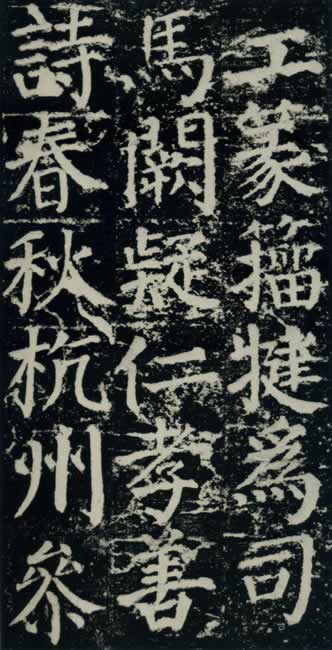 工篆籀犍爲司
馬闕疑仁孝善
詩春秋杭州參